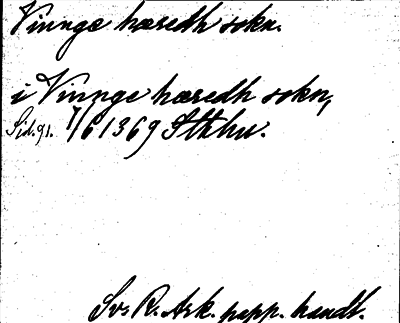 Vinnge hæredh sokn.
i Vinnge hæredh sokn,
Sid. 91. 7/6 1369 Sthlm.
Sv. R. Ark. papp. handl.